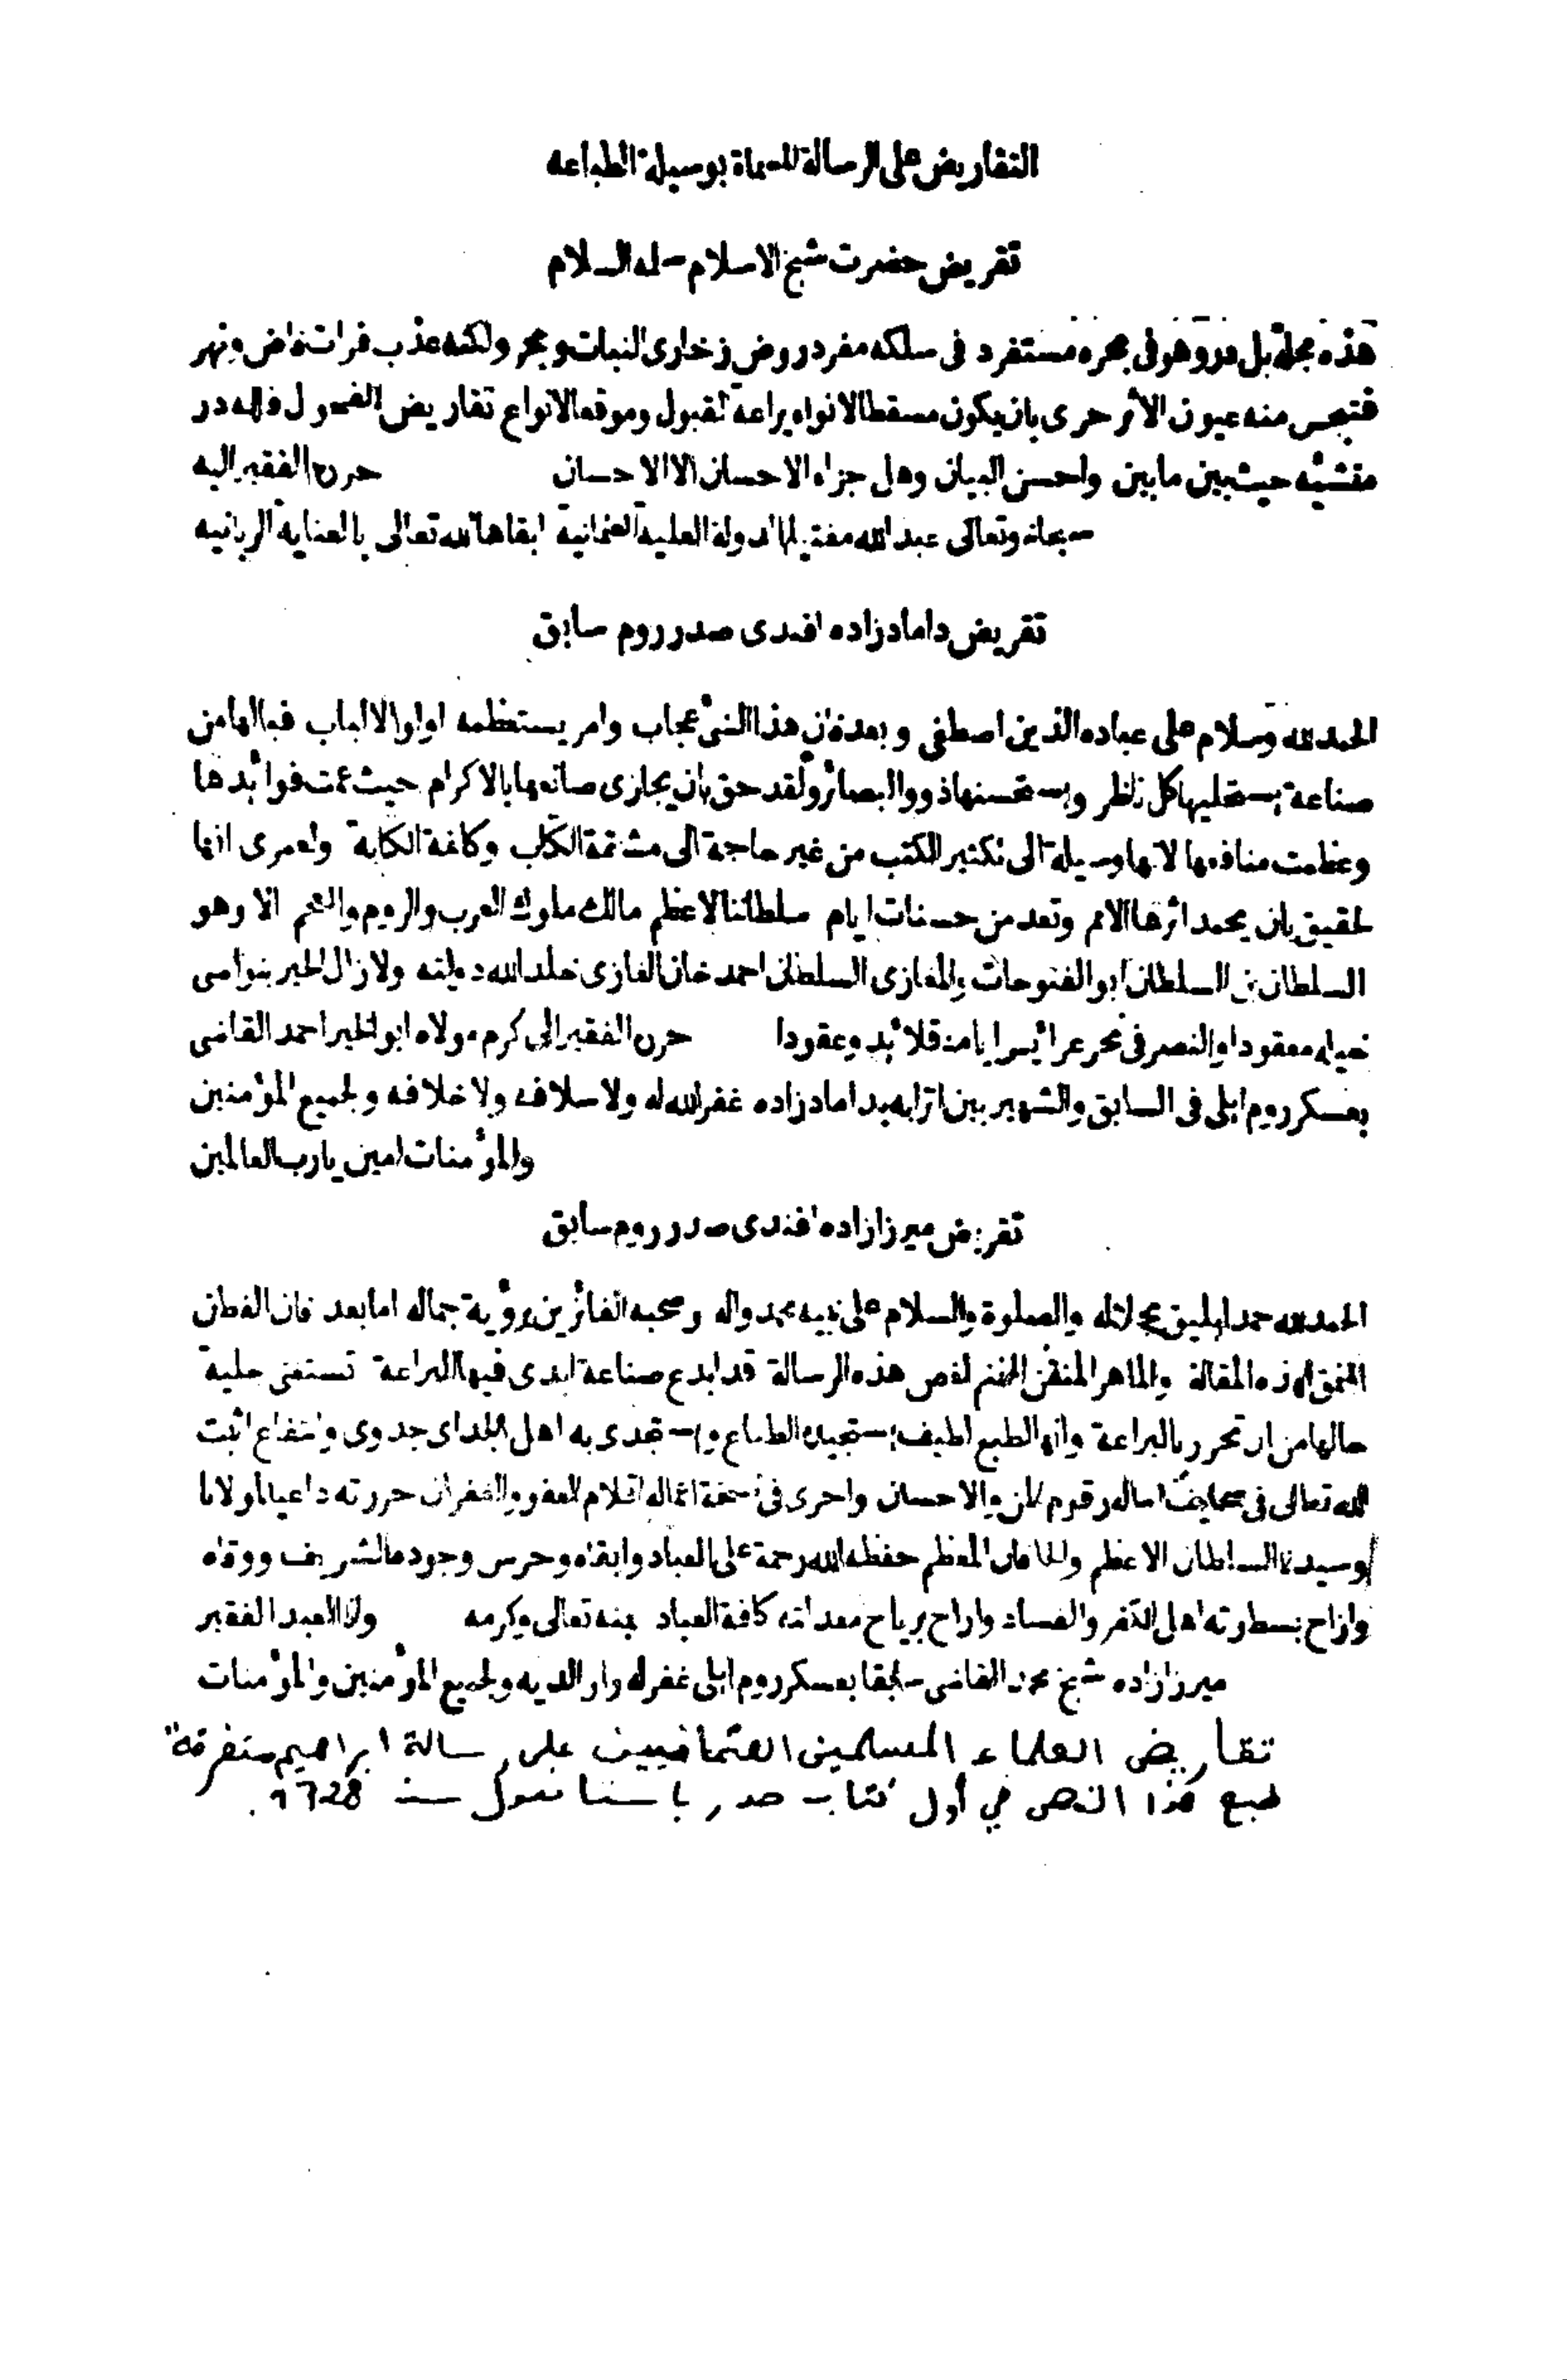 التقاريض على الرسالة المسماة بوسيلة الطباعه
تقريض حضرت شيخ الاسلام سلمه السلام
هذه مجلة بل درة وهو فى بحره مستفرد فى سلكه مفرد روض زخارى النبات وبحر ولكنه عذب فرات فاض ونهر
فتبجس منه عيون الأثر حرى بان يكون مسقط الانواه يراعة القبول وموقع الانواع تقاريض الفحول فلله در
منشئه حيث بين ما بين واحسن البيان وهل جزاء الاحسان الا الاحسان حرره الفقير اليه
سبحانه وتعالى عبد الله مفتى الدولة العلية العثمانية ابقاها الله تعالى بالعناية الربانيه
تقريض داماد زاده افندى صدر روم سابق
الحمد لله وسلام على عباده الذين اصطفى وبعد فان هذا الشئ عجاب وامر يستعظمه اولوا الالباب فيالها من
صناعة يستحليها كل ناظر ويستحسنها ذووا البصائر ولقد حق بان يجازى صانعها بالاكرام حيث عمت فوائدها
وعظمت منافعها لانها وسيلة الى تكثير الكتب من غير حاجة الى مشقة الكتاب وكلفة الكتابة ولعمرى انها
لحقيق بان يحمد اثرها الامم وتعد من حسنات ايام سلطاننا الاعظم مالك ملوك العرب والروم والعجم الا وهو
السلطان بن السلطان ابو الفتوحات والمغازى السلطان احمد خان الغازى خلد الله دولته ولا زال الخير بنواصى
خيله معقودا والنصر فى نحر عرائس ايامه قلائد وعقودا حرره الفقير الى كرم مولاه ابو الخير احمد القاضى
بعسكر روم ايلى فى السابق والشهير بين اترابه بداماد زاده غفر الله له ولاسلافه ولاخلافه ولجميع المؤمنين
والمؤمنات امين يا رب العالمين
تقريض ميرزا زاده افندى صدر روم سابق
الحمد لله حمدا يليق بجلاله والصلوة والسلام على نبيه محمد واله وصحبه الفائزين برؤية جماله اما بعد فان الفطن
المنمق لهذه المقالة والماهر المتقن المخترع لفص هذه الرسالة قد ابدع صناعة ابدى فيها البراعة تستغنى حلية
حالها من ان تحرر باليراعة وانه الطبع لطيف يستجيده الطباع ويستجدى به اهل الجد اى جدوى وانتفاع اثبت
الله تعالى فى صحايف اماله رقوم المن والاحسان واجرى فى نسخة اعماله اقلام العفو والغفران حررته داعيا لمولانا
وسيدنا السلطان الاعظم والخاقان المعظم حفظه الله رحمة على العباد وابقاه وحرس وجوده الشريف ووقاه
وازاح بسطوته اهل الكفر والفساد واراح برياح معدلته كافة العباد بمنه تعالى وكرمه وانا العبد الفقير
ميرزا زاده شيخ محمد القاضى سابقا بعسكر روم ايلى غفر له ولوالديه ولجميع المؤمنين والمؤمنات
تقاريض العلماء المسلمين العثمانيين على رسالة ابراهيم متفرقة
طبع هذا النص في أول كتاب صدر باستانبول سنة 1728.